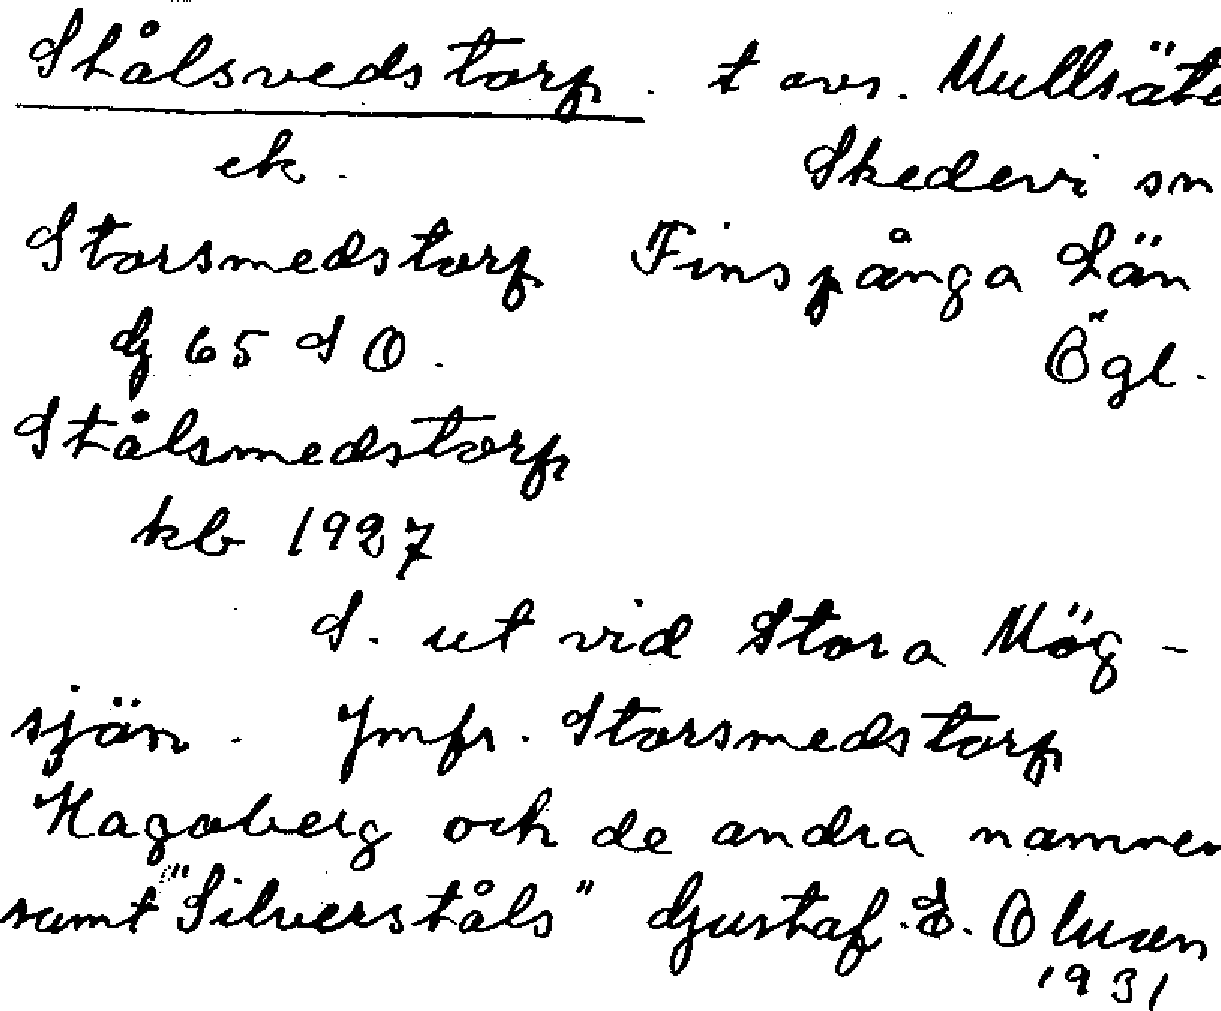 Stålsvedstorp. t avs. Mullsäte
ek. Skedevi sn
Storsmedstorp Finspånga Län
G 65 S O. Ögl.
Stålsmedstorp
kb 1927
S. ut vid Stora Mög-
sjön. Jmfr. Storsmedstorp
Hagaberg och de andra namnen
samt "Silverståls" Gustaf. E. Olsson
1931